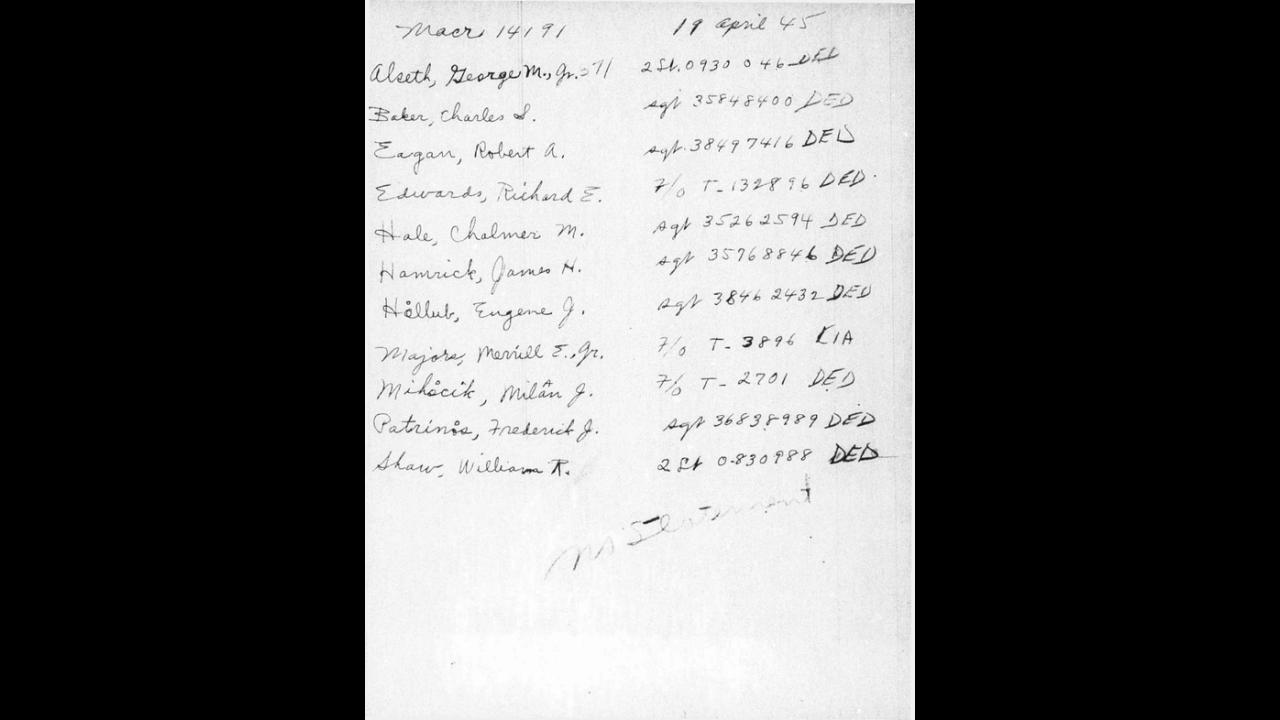 Macr 14191 19 april 45
Alseth, George M., Jr. 2 Lt. 0930 046 DED
Baker, Charles S. sgt 35848400 DED
Eagan, Robert A. sgt. 38497416 DED
Edwards, Richard E. F/O T-132896 DED.
Hale, Chalmer M. sgt 35262594 DED
Hamrick, James H. sgt 35768846 DED
Hollub, Eugene J. sgt 38462432 DED
Majors, Merrill E., Jr. F/O T-3896 KIA
Mihocik, Milan J. F/O T-2701 DED
Patrinos, Frederick J. sgt 36838989 DED
Shaw, William R. 2 Lt 0-830988 DED
No Statement